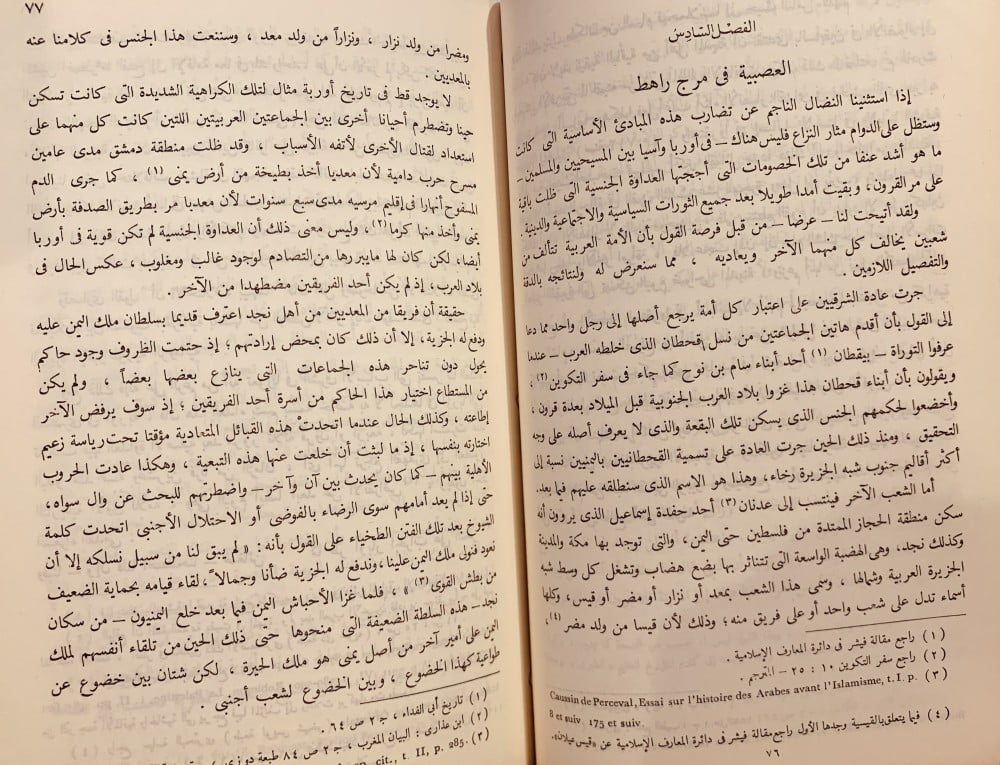 الفصل السادس
العصبية فى مرج راهط
إذا استثنينا النضال الناجم عن تضارب هذه المبادئ الأساسية التى كانت
وستظل على الدوام مثار النزاع فليس هناك — فى أوربا وآسيا بين المسيحيين والمسلمين —
ما هو أشد عنفا من تلك الخصومات التى أججتها العداوة الجنسية التى ظلت باقية
على مر القرون، وبقيت أمدا طويلا بعد جميع الثورات السياسية والاجتماعية والدينية.
ولقد أتيحت لنا — عرضا — من قبل فرصة القول بأن الأمة العربية تتألف من
شعبين يخالف كل منهما الآخر ويعاديه ، مما سنعرض له ولنتائجه بالدقة
والتفصيل اللازمين .
جرت عادة الشرقيين على اعتبار كل أمة يرجع أصلها إلى رجل واحد مما دعا
إلى القول بأن أقدم هاتين الجماعتين من نسل قحطان الذى خلطه العرب — عندما
عرفوا التوراة — بيقطان (١) أحد أبناء سام بن نوح كما جاء فى سفر التكوين (٢) ،
ويقولون بأن أبناء قحطان هذا غزوا بلاد العرب الجنوبية قبل الميلاد بعدة قرون ،
وأخضعوا لحكمهم الجنس الذى يسكن تلك البقعة والذى لا يعرف أصله على وجه
التحقيق ، ومنذ ذلك الحين جرت العادة على تسمية القحطانيين باليمنيين نسبة إلى
أكثر أقاليم جنوب شبه الجزيرة رخاء، وهذا هو الاسم الذى سنطلقه عليهم فيما بعد.
أما الشعب الآخر فينتسب إلى عدنان (٣) أحد حفدة إسماعيل الذى يروون أنه
سكن منطقة الحجاز الممتدة من فلسطين حتى اليمن، والتى توجد بها مكة والمدينة
وكذلك نجد، وهى الهضبة الواسعة التى تتناثر بها بضع هضاب وتشغل كل وسط شبه
الجزيرة العربية وشمالها ، وسمى هذا الشعب بمعد أو نزار أو مضر أو قيس، وكلها
أسماء تدل على شعب واحد أو على فريق منه؛ وذلك لأن قيسا من ولد مضر (٤)،
(١) راجع مقالة فيشر فى دائرة المعارف الإسلامية .
(٢) راجع سفر التكوين ١٠ : ٢٥ — المترجم .
(٣) Caussin de Perceval, Essai sur l'histoire des Arabes avant l'Islamisme, t. I. p.
8 et suiv. 175 et suiv.
(٤) فيما يتعلق بالقيسية وجدها الأول راجع مقالة فيشر فى دائرة المعارف الإسلامية عن «قيس عيلان».
٧٦
٧٧
ومضرا من ولد نزار ، ونزاراً من ولد معد ، وسننعت هذا الجنس فى كلامنا عنه
بالمعديين .
لا يوجد قط فى تاريخ أوربة مثال لتلك الكراهية الشديدة التى كانت تسكن
حينا وتضطرم أحيانا أخرى بين الجماعتين العربيتين اللتين كانت كل منهما على
استعداد لقتال الأخرى لأتفه الأسباب ، وقد ظلت منطقة دمشق مدى عامين
مسرح حرب دامية لأن معديا أخذ بطيخة من أرض يمنى (١) ، كما جرى الدم
المسفوح أنهارا فى إقليم مرسيه مدى سبع سنوات لأن معديا مر بطريق الصدفة بأرض
يمنى وأخذ منها كرما (٢)، وليس معنى ذلك أن العداوة الجنسية لم تكن قوية فى أوربا
أيضا، لكن كان لها مايبررها من التصادم لوجود غالب ومغلوب ، عكس الحال فى
بلاد العرب، إذ لم يكن أحد الفريقين مضطهدا من الآخر .
حقيقة أن فريقا من المعديين من أهل نجد اعترف قديما بسلطان ملك اليمن عليه
ودفع له الجزية، إلا أن ذلك كان بمحض إرادتهم ؛ إذ حتمت الظروف وجود حاكم
يحول دون تناحر هذه الجماعات التى ينازع بعضها بعضاً ، ولم يكن
من المستطاع اختيار هذا الحاكم من أسرة أحد الفريقين ؛ إذ سوف يرفض الآخر
إطاعته ، وكذلك الحال عندما اتحدت هذه القبائل المتعادية مؤقتا تحت رياسة زعيم
اختارته بنفسها ، إذ ما لبثت أن خلعت عنها هذه التبعية ، وهكذا عادت الحروب
الأهلية بينهم — كما كان يحدث بين آن وآخر — واضطرتهم للبحث عن وال سواه،
حتى إذا لم يعد أمامهم سوى الرضاء بالفوضى أو الاحتلال الأجنبى اتحدت كلمة
الشيوخ بعد تلك الفتن الطخياء على القول بأنه : « لم يبق لنا من سبيل نسلكه إلا أن
نعود فنولى ملك اليمن علينا، وندفع له الجزية ضأنا وجمالا ً، لقاء قيامه بحماية الضعيف
من بطش القوى (٣) » ، فلما غزا الأحباش اليمن فيما بعد خلع اليمنيون — من سكان
نجد — هذه السلطة الضعيفة التى منحوها حتى ذلك الحين من تلقاء أنفسهم لملك
اليمن على أمير آخر من أصل يمنى هو ملك الحيرة ، لكن شتان بين خضوع عن
طواعية كهذا الخضوع ، وبين الخضوع لشعب أجنبى .
(١) تاريخ أبى الفداء ، جـ ٢ ص ٦٤ .
(٢) ابن عذارى : البيان المغرب ، جـ ٢ ص ٨٤ طبعة دوزى
(٣) op. cit., t. II, p. 285.